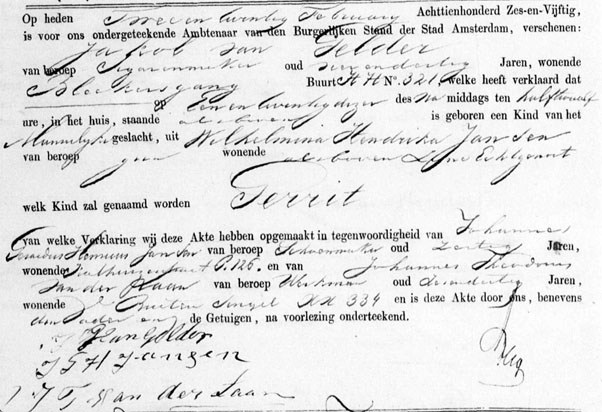 Op heden Twee en twintig February Achttienhonderd Zes-en-Vijftig,
is voor ons ondergeteekende Ambtenaar van den Burgerlijken Stand der Stad Amsterdam, verschenen:
Jakob van Gelder
van beroep Sigarenmaker oud Jaren, wonende
Bloekersgang Buurt HH No. 321, welke heeft verklaard dat
op Een en twintig dezer des Na middags ten half twaalf
ure, in het huis, staande alsboven is geboren een Kind van het
Mannelijke geslacht, uit Wilhelmina Hendrika Jansen
van beroep geen wonende alsboven zijne Echtgenoot
welk Kind zal genaamd worden Gerrit
van welke Verklaring wij deze Akte hebben opgemaakt in tegenwoordigheid van Johannes
Jansen van beroep Schoenmaker oud Jaren,
wonende P. 126. en van Johannes Theodorus
van der Laan van beroep Werkman oud Jaren,
wonende Buiten Singel XX 334 en is deze Akte door ons, benevens
den Vader en de Getuigen, na voorlezing onderteekend.
J van Gelder
J G H Jansen
J T van der Laan